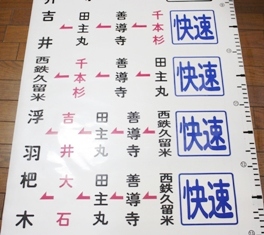 快速
千本杉
善導寺
田主丸
吉井
快速
田主丸
善導寺
千本杉
西鉄久留米
快速
西鉄久留米
善導寺
田主丸
吉井
浮羽
快速
西鉄久留米
善導寺
田主丸
大石
杷木